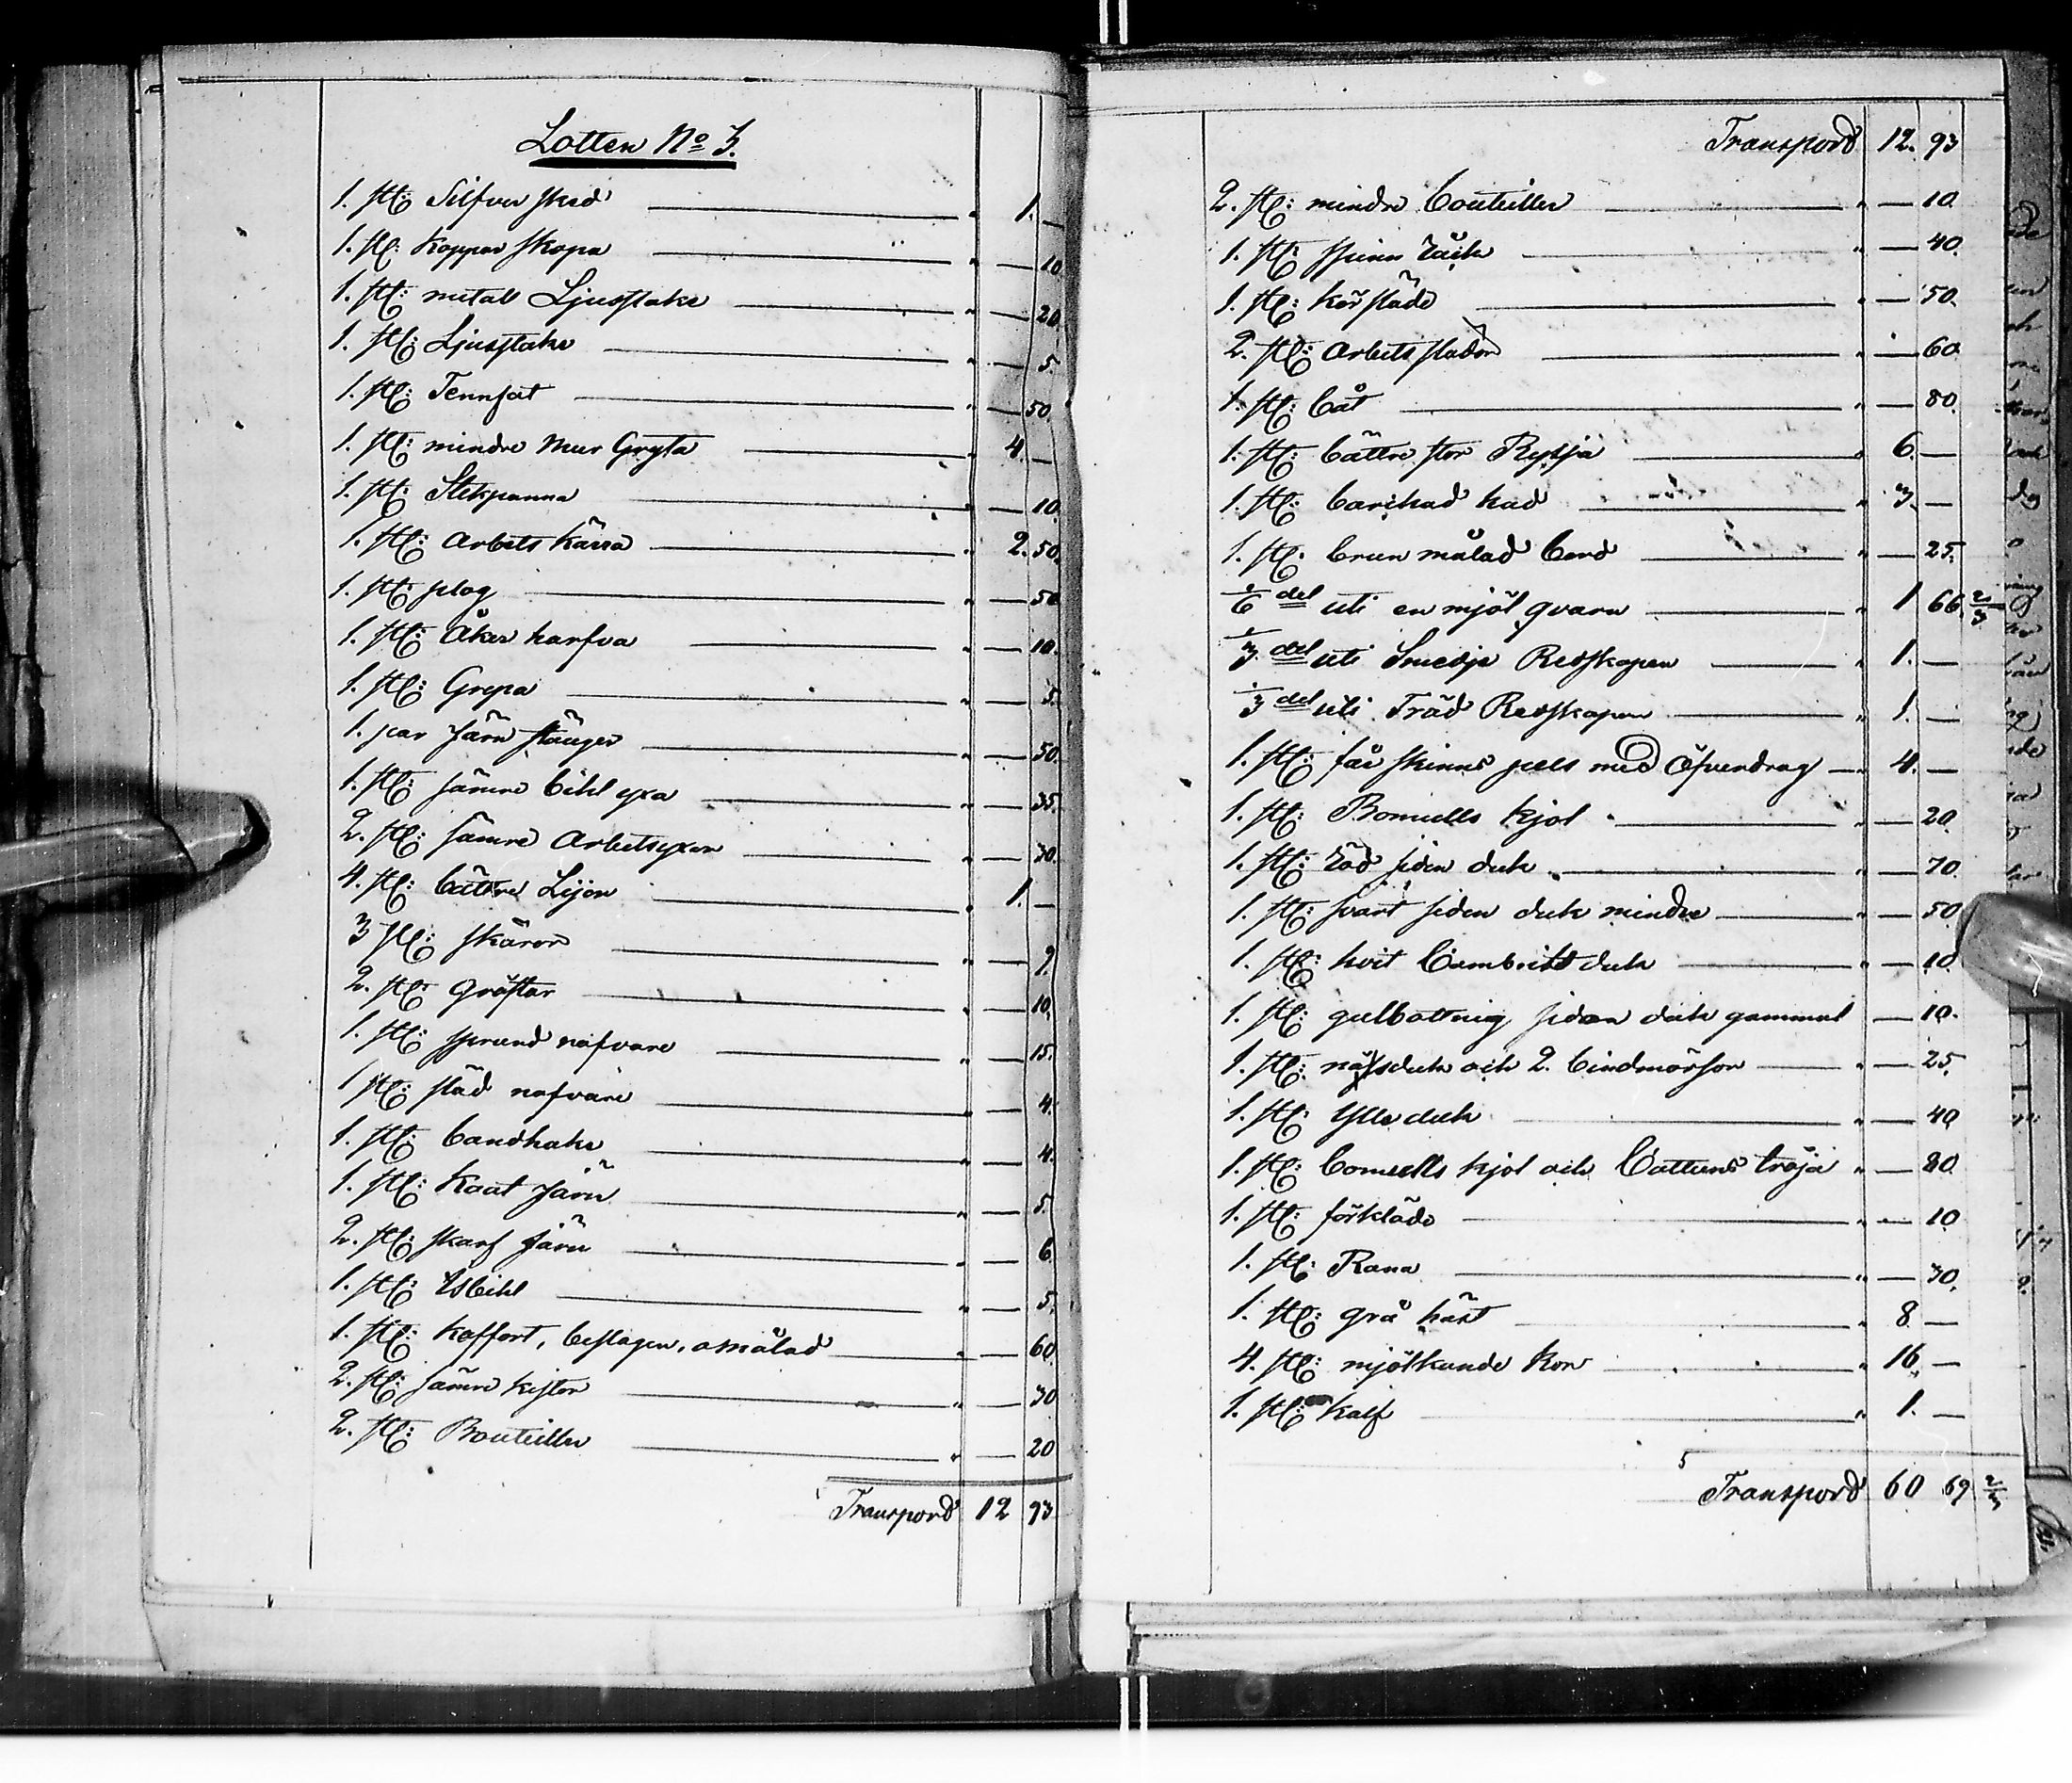 Lotten No 3.
1. st: Silfver sked " 1. —
1. st: Koppar skopa " — 10
1. st: metall Ljusstake " — 20
1. st: Ljusstake " — 5.
1. st: Tennfat " — 50.
1. st: mindre mur Gryta " 4. —
1. st: Stekpanna " — 10.
1. st: Arbets kärra " 2. 50.
1. st: plog " — 50
1. st: Åker harfva " — 10.
1. st: Grepa " — 5.
1. par Järn stänger " — 50.
1. st: sämre bihl yxa " — 35.
2. st: sämre Arbetsyxor " — 30.
4. st: bättre Lijor " 1. —
3 st: skäror " — 9.
2. st: Gräftor " — 10.
1. st: sprund nafvare " — 15.
1 st: städ nafvare " — 4.
1. st: bandhake " — 4.
1. st: Kaat Järn " — 5.
2. st: skarf järn " — 6.
1. st: Isbihl " — 5.
1. st: Koffort, beslagen, omålad " — 60.
2. st: sämre kistor " — 30
2. st: Bouteiller " — 20
Transpord 12 93
Transpord 12. 93
2. st: mindre bouteiller " — 10.
1. st: spinn råck " — 40.
1. st: kör släde " — 50.
2. st: arbets slädor " — 60
1. st: båt " — 80.
1. st: bättre stor Ryssja " 6. —
1. st: barikad kad " 3. —
1. st: brun målad bord " — 25.
1/6 del uti en mjöl qvarn " 1 66 2/3
1/3 del uti Smedje Redskapen " 1. —
1/3 del uti Träd Redskapen " 1. —
1. st: får skinns pels med Öfverdrag " 4. —
1. st: Bomulls kjol " — 20.
1. st: röd siden duk " — 70.
1. st: svart siden duk mindre " — 50
1. st: hvit Cambriks duk " — 10.
1. st: gulbottnig siden duk gammal — 10.
1. st: näsduk och 2. bindmössor " — 25.
1. st: Ylle duk " — 40
1. st: bomulls kjol och Cattuns tröja " — 80.
1. st: förkläde " — 10
1. st: Rana " — 30.
1. st: grå häst " 8 —
4. st: mjölkande Kor " 16. —
1. st: Kalf " 1. —
Transpord 60 69 2/3